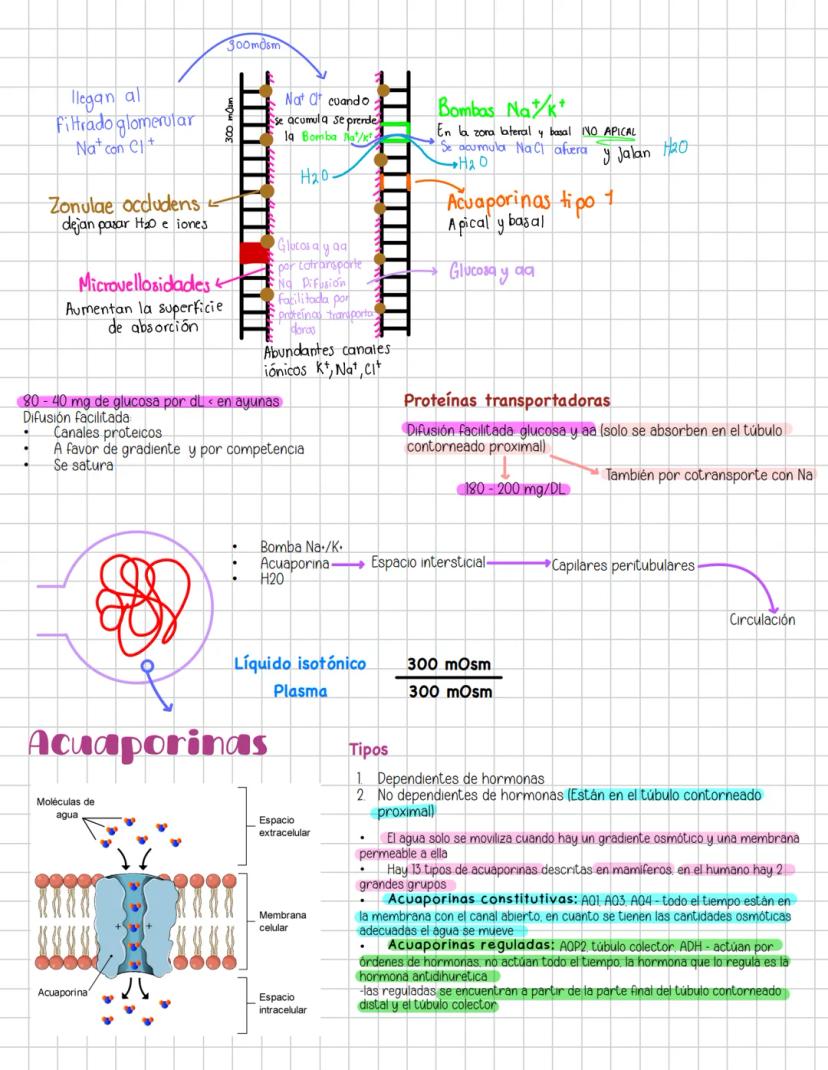 300mOsm
llegan al
filtrado glomerular
Na⁺ con Cl⁺
300 mOsm
Na⁺ Cl⁺ cuando
se acumula se prende
la Bomba Na⁺/K⁺
H₂O
Bombas Na⁺/K⁺
En la zona lateral y basal NO APICAL
Se acumula NaCl afuera y jalan H₂O
H₂O
Zonulae occludens
dejan pasar H₂O e iones
Acuaporinas tipo 1
Apical y basal
Glucosa y aa
por cotransporte
Na Difusión
facilitada por
proteínas transporta
doras
Glucosa y aa
Microvellosidades
Aumentan la superficie
de absorción
Abundantes canales
iónicos K⁺, Na⁺, Cl⁺
80 - 40 mg de glucosa por dL < en ayunas
Difusión facilitada
• Canales proteicos
• A favor de gradiente y por competencia
• Se satura
Proteínas transportadoras
Difusión facilitada glucosa y aa (solo se absorben en el túbulo
contorneado proximal)
También por cotransporte con Na
180 - 200 mg/DL
• Bomba Na+/K+
• Acuaporina
• H2O
Espacio intersticial
Capilares peritubulares
Circulación
Líquido isotónico
Plasma
300 mOsm
300 mOsm
Acuaporinas
Moléculas de
agua
Espacio
extracelular
Membrana
celular
+ +
Acuaporina
Espacio
intracelular
Tipos
1. Dependientes de hormonas
2. No dependientes de hormonas (Están en el túbulo contorneado
proximal)
• El agua solo se moviliza cuando hay un gradiente osmótico y una membrana
permeable a ella
• Hay 13 tipos de acuaporinas descritas en mamíferos, en el humano hay 2
grandes grupos
• Acuaporinas constitutivas: AQ1, AQ3, AQ4 - todo el tiempo están en
la membrana con el canal abierto, en cuanto se tienen las cantidades osmóticas
adecuadas el agua se mueve
• Acuaporinas reguladas: AQP2, túbulo colector, ADH - actúan por
órdenes de hormonas, no actúan todo el tiempo, la hormona que lo regula es la
hormona antidihurética
-las reguladas se encuentran a partir de la parte final del túbulo contorneado
distal y el túbulo colector